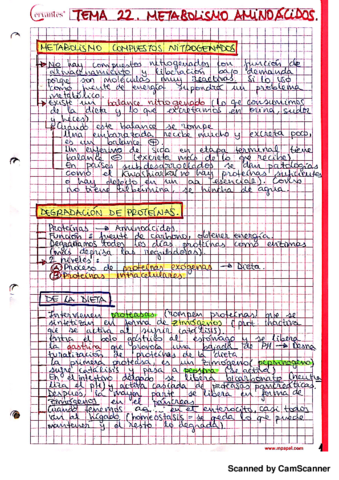 Cervantes
TEMA 22. METABOLISMO AMINOÁCIDOS.
METABOLISMO COMPUESTOS NITROGENADOS
No hay compuestos nitrogenados con función de
almacenamiento y liberación bajo demanda
porque son moléculas muy reactivas. Si lo uso
como fuente de energía supondrá un problema
metabólico.
Existe un balance nitrogenado (lo que consumimos
de la dieta y lo que excretamos en orina, sudor
y heces)
Cuando este balance se rompe
Una embarazada recibe mucho y excreta poco,
es un balance +.
Un enfermo de sida en etapa terminal tiene
balance - (excreta más de lo que recibe)
En países subdesarrollados se dan patologías
como el Kwashiorkor no hay proteínas suficientes
o hay déficit en un aa (esencial). Como
no tiene se hincha de agua.
DEGRADACIÓN DE PROTEÍNAS.
Proteínas → Aminoácidos.
Función: fuente de carbono, obtener energía.
Degradamos todos los días proteínas como
(más deprisa las reguladoras).
2 niveles:
A Proceso de proteínas exógenas → Dieta.
B Proteínas intracelulares.
DE LA DIETA
Intervienen proteasas (rompen proteínas) que se
sintetizan en forma de zimógenos (prot inactiva
que se activa al sufrir catálisis)
el bolo gástrico al estómago y se libera
la gastrina que provoca una bajada de PH → Desna
turalización de proteínas de la dieta.
La primera proteasa, es un zimógeno (pepsinógeno)
sufre catálisis y pasa a pepsina (se activa)
En el intestino delgado se libera bicarbonato (neutra
liza el pH) y activa cascada de proteasas pancreáticas.
Después la mayor parte se libera en forma de
zimógenos en el páncreas
Cuando tenemos aa... en el enterocito, casi todos
van al hígado (homeostasis = se queda lo que puede
mantener y el resto lo degrada).
www.mpapel.com
Scanned by CamScanner